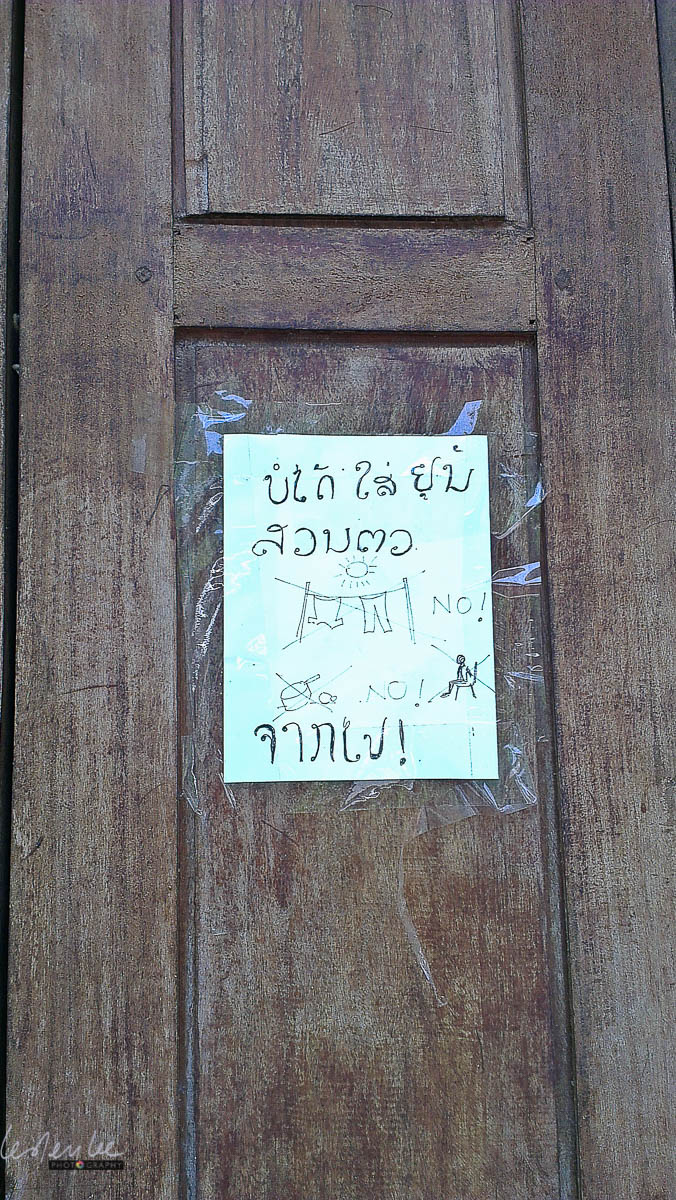 ບໍ່ໄດ້ ໃສ່ ຢູ່ນີ້
ສວນຕວ
NO!
NO!
ຈາກໄປ!
PHOTOGRAPHY